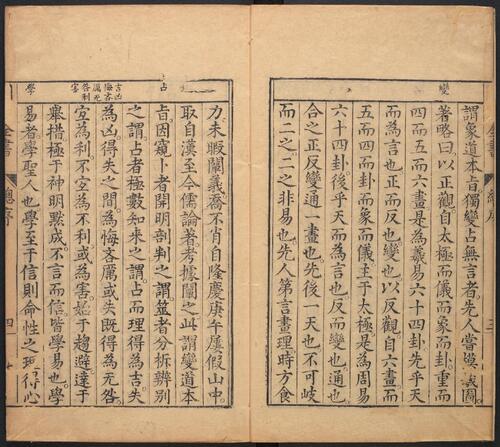 變
謂象道本旨獨變占無言者先人嘗演義圖
著略曰以正觀自太極而儀而象而卦重而
四而五而六畫是為羲易六十四卦先乎天
而為言也正而反也變也以反觀自六畫而
五而四而卦而象而儀至于太極是為周易
六十四卦後乎天而為言也反而變也通也
合之正反變通一畫也先後一天也不可岐
而二之二之非易也先人第言畫理時方食
占
吉凶悔吝厲无咎利害
學
力未暇闡義喬不肖自隆慶庚午屢假山中
取自漢至今儒論著考據闡之此謂變道本
旨因窺卜者開明剖判之謂筮者分析辨別
之謂占者極數知來之謂占而理得為吉失
為凶得失之間為悔吝厲或失既得為无咎
宜為利不宜為不利或為害於趨避達于
舉措極于神明默成不言而信皆學易也學
易者學聖人也學至于信則命性之理得心
全書
總序
四